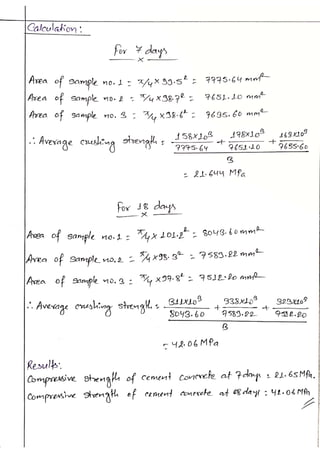 Calculation:
For 7 days
Area of sample no. 1 = π/4 × 99.5² = 7775.64 mm²
Area of sample no. 2 = π/4 × 98.7² = 7651.10 mm²
Area of sample no. 3 = π/4 × 98.6² = 7635.60 mm²
∴ Average crushing strength = 158×10³/7775.64 + 178×10³/7651.10 + 163×10³/7635.60
3
= 21.644 MPa
For 28 days
Area of sample no. 1 = π/4 × 101.2² = 8043.60 mm²
Area of sample no. 2 = π/4 × 98.3² = 7589.22 mm²
Area of sample no. 3 = π/4 × 97.8² = 7512.20 mm²
∴ Average crushing strength = 311×10³/8043.60 + 338×10³/7589.22 + 323×10³/7512.20
3
= 42.06 MPa
Results:
Compressive strength of cement concrete at 7 days = 21.65 MPa.
Compressive strength of cement concrete at 28 days = 42.06 MPa